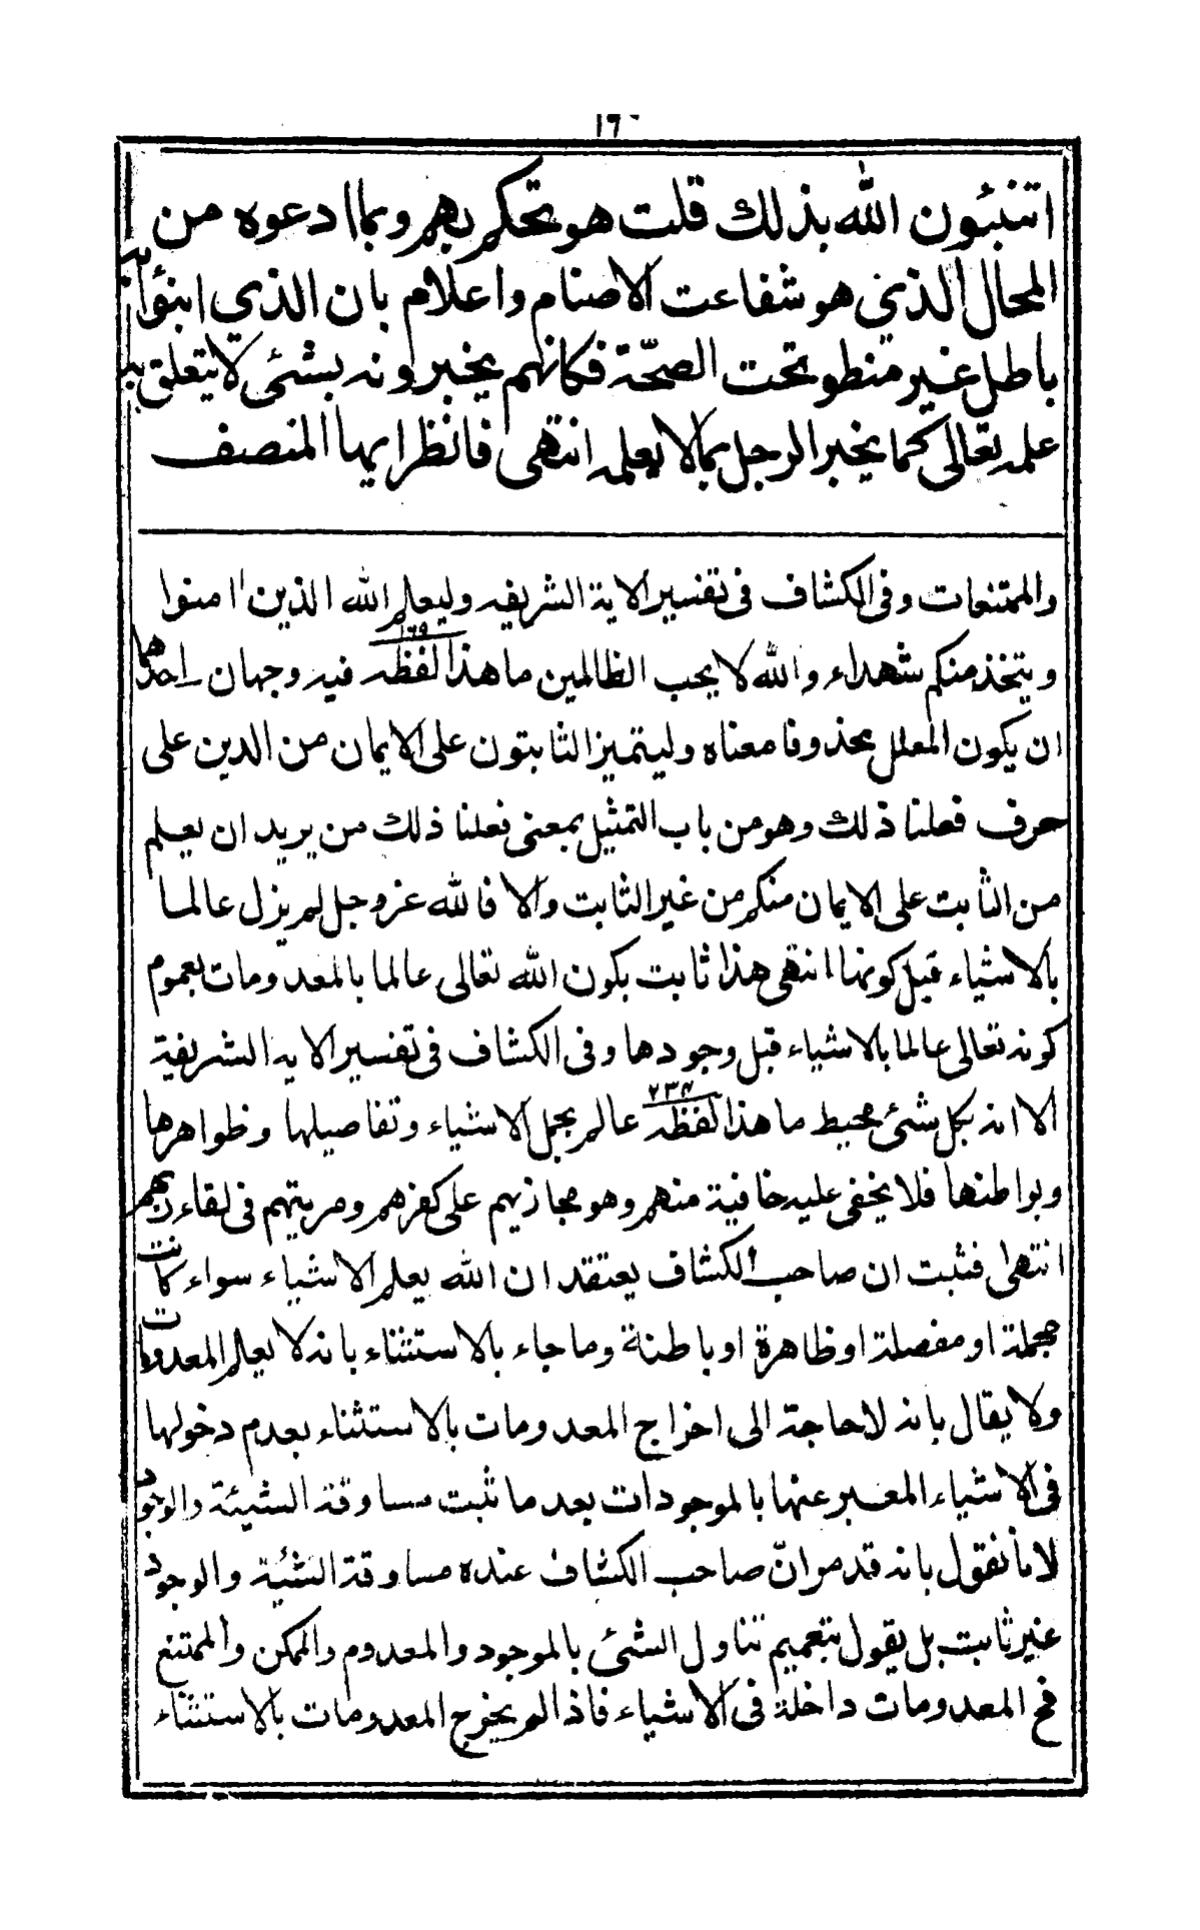 ١٦٠
اتنبئون الله بذلك قلت هو تحكم بهم وبما ادعوه من
المحال الذي هو شفاعت الاصنام واعلام بان الذي انبئوا به
باطل غير منطو تحت الصحّة فكانهم يخبرونه بشئ لا يتعلق به
علمه تعالى كما يخبر الرجل بما لا يعلمه انتهى فانظر ايها المنصف
والممتنعات وفى الكشاف فى تفسير الاية الشريفه وليعلم الله الذين امنوا
ويتخذ منكم شهداء والله لا يحب الظالمين ما هذا لفظه ١٦٥ فيه وجهان احدهما
ان يكون المعلل محذوفا معناه وليتميز الثابتون على الايمان من الدين على
حرف فعلنا ذلك وهو من باب التمثيل بمعنى فعلنا ذلك من يريد ان يعلم
من الثابت على الايمان منكم من غير الثابت والا فالله عز وجل لم يزل عالما
بالاشياء قبل كونها انتهى هذا ثابت بكون الله تعالى عالما بالمعدومات بعموم
كونه تعالى عالما بالاشياء قبل وجودها وفى الكشاف فى تفسير الايه الشريفة
الا انه بكل شئ محيط ما هذا لفظه ٢٣٤ عالم بجمل الاشياء وتفاصيلها وظواهرها
وبواطنها فلا يخفى عليه خافية منهم وهو مجازيهم على كفرهم ومريتهم فى لقاء ربهم
انتهى فثبت ان صاحب الكشاف يعتقد ان الله يعلم الاشياء سواء كانت
مجملة او مفصلة او ظاهرة او باطنة وما جاء بالاستثناء بانه لا يعلم المعدومات
ولا يقال بانه لا حاجة الى اخراج المعدومات بالاستثناء بعدم دخولها
فى الاشياء المعبر عنها بالموجودات بعد ما ثبت مساوقة الشيئة والوجود
لانا نقول بانه قد مر انّ صاحب الكشاف عنده مساوقة الشئية والوجود
غير ثابت بل يقول بتعميم تناول الشئ بالموجود والمعدوم والممكن والممتنع
فح المعدومات داخلة فى الاشياء فاذا لم يخرج المعدومات بالاستثناء